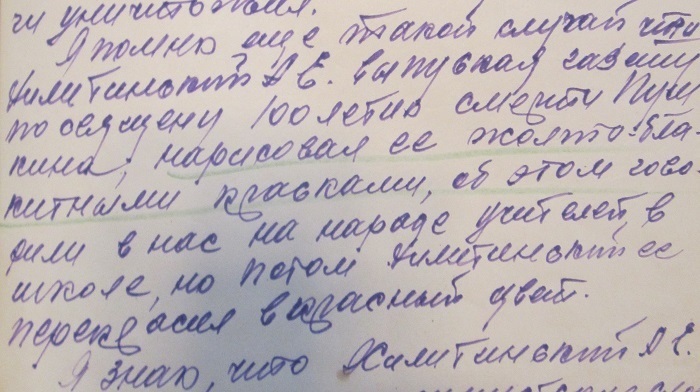 чи уничтожил.
Я помню еще такой случай что
Хилитинский А Е. выпуская газету
посвящену 100 летию смерти Пуш
кина, нарисовал ее жолто-бла-
китными красками, об этом гово-
рили в нас на нараде учителей, в
школе, но потом Хилитинский ее
перекрасил в красный цвет.
Я знаю, что Хилитинский А Е.